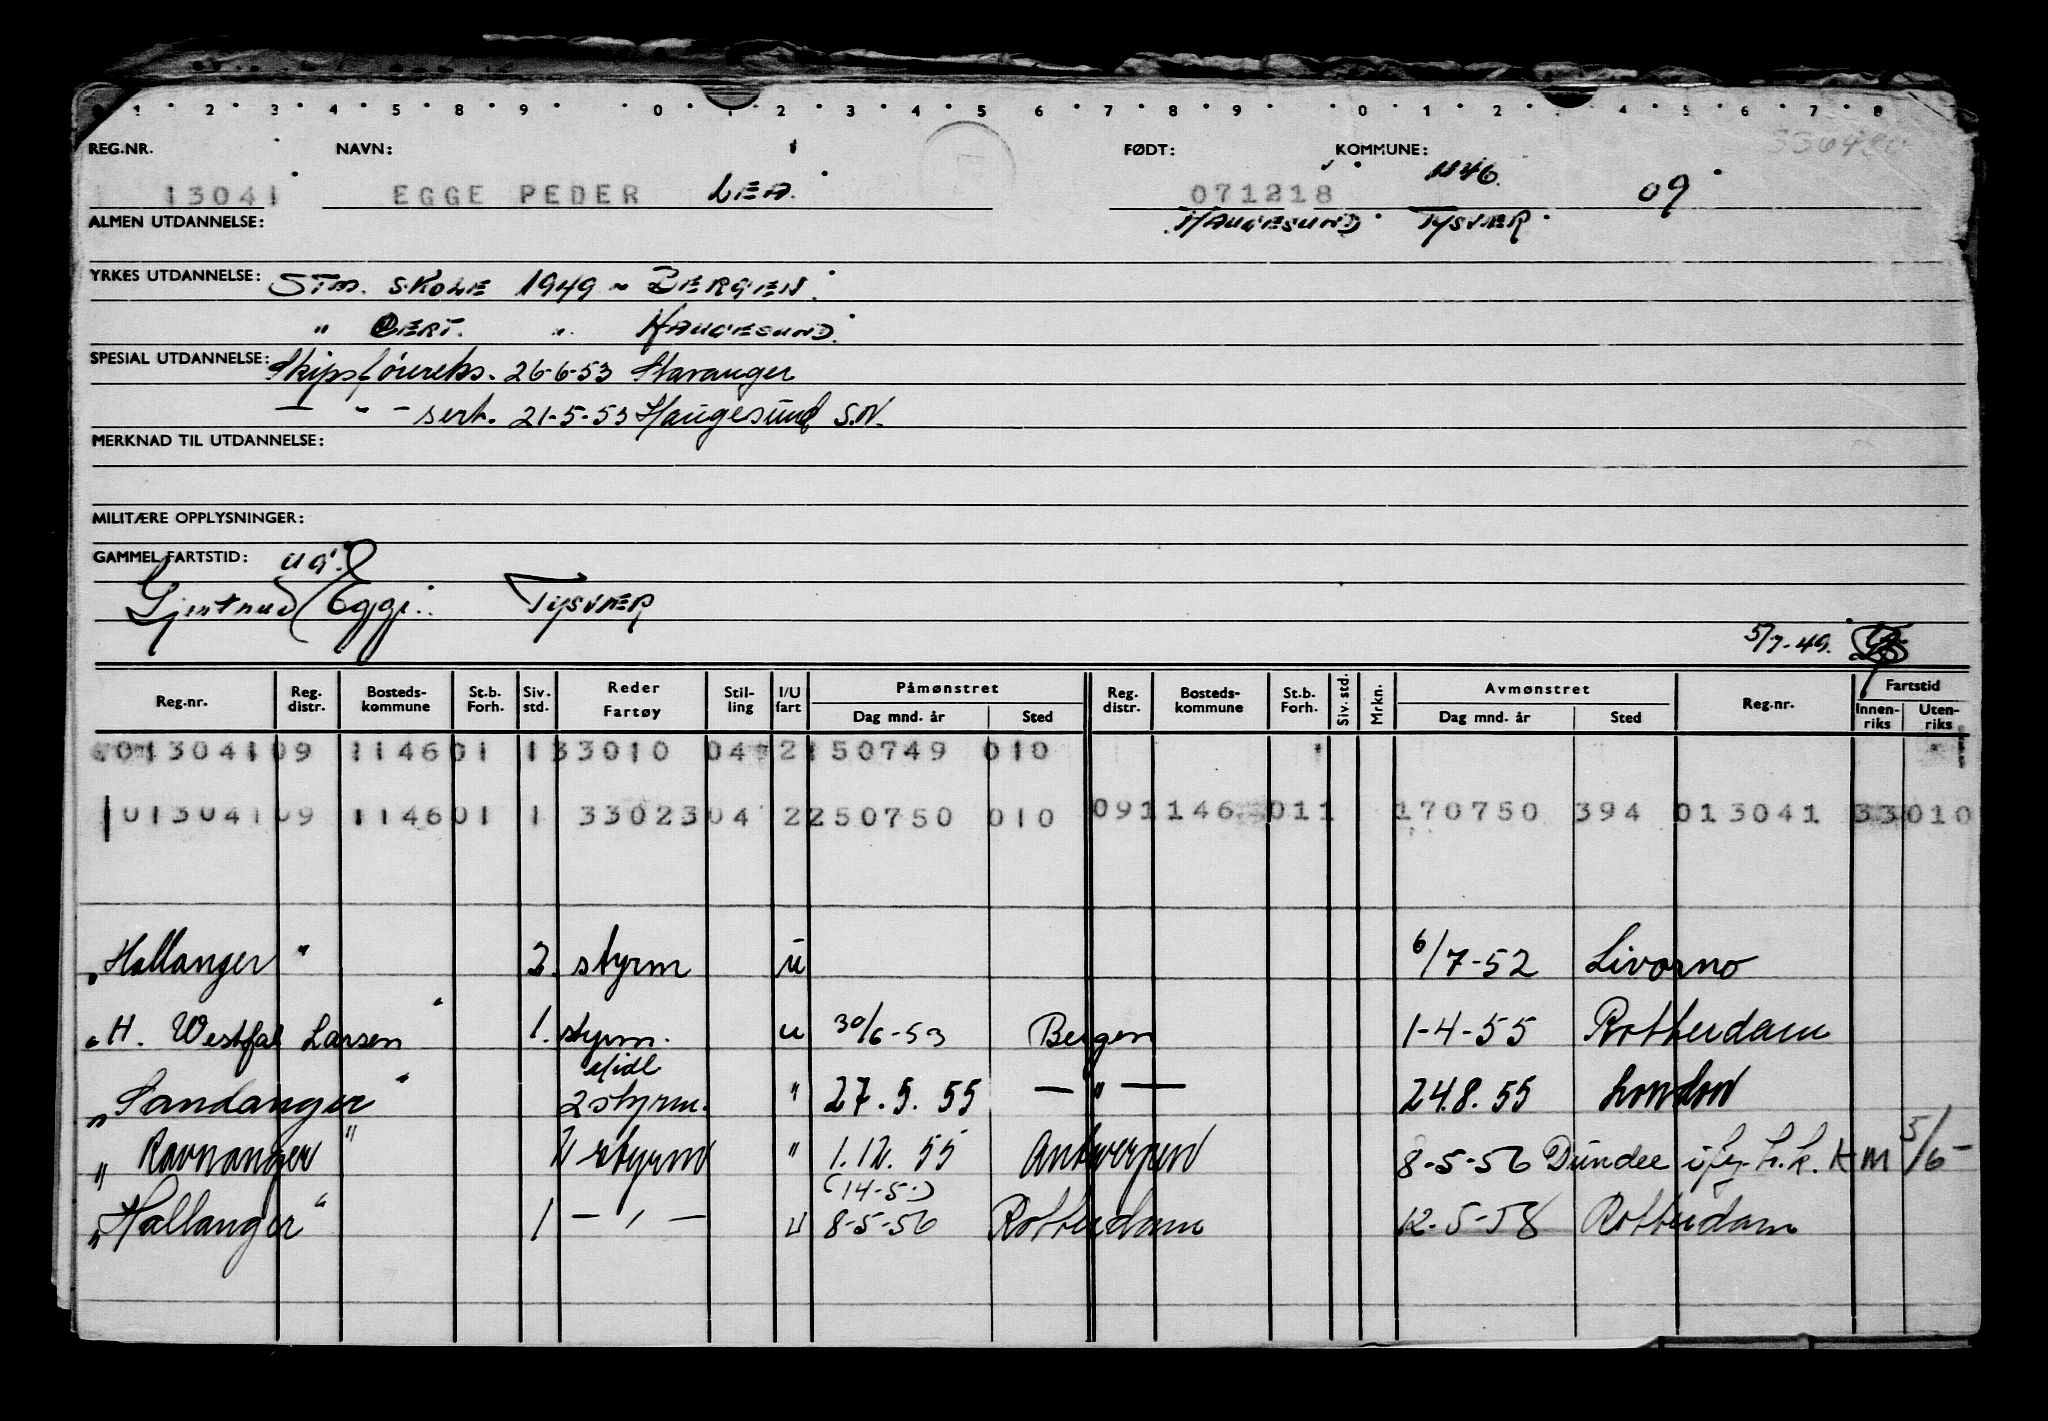 1 2 3 4 5 8 9 0 1 2 3 4 5 6 7 8 9 0 1 2 4 5 6 7 8
REG.NR. NAVN: FØDT: KOMMUNE:
1146. 09
13041 EGGE PEDER LEA. 071218
ALMEN UTDANNELSE: HAUGESUND TYSVÆR
YRKES UTDANNELSE: STM. SKOLE 1949 ~ BERGEN.
" CERT. " HAUGESUND.
SPESIAL UTDANNELSE: Skipsførereks. 26-6-53 Stavanger
— " - sert. 21-5-53 Haugesund S.N.
MERKNAD TIL UTDANNELSE:
MILITÆRE OPPLYSNINGER:
GAMMEL FARTSTID: ug.
Gjertrud Egge.. TYSVÆR
5/7-49.
Reg.nr. Reg. distr. Bosteds-kommune St.b. Forh. Siv. std. Reder Fartøy Stil-ling I/U fart Påmønstret Dag mnd. år Sted Reg. distr. Bosteds-kommune St.b. Forh. Siv. std. Mrkn. Avmønstret Dag mnd. år Sted Reg.nr. Fartstid Innen-riks Uten-riks
013041 09 1146 01 1 33010 04 2 150749 010
013041 09 1146 01 1 33023 04 2 250750 010 09 1146 011 170750 394 013041 33010
"Hallanger" 2. styrm u 6/7-52 Livorno
"H. Westfal Larsen" 1. styrm. u 30/6-53 Bergen 1-4-55 Rotterdam
midl
"Sandanger" 2 styrm. " 27. 5. 55 — " — 24.8. 55 London
"Ravnanger" styrm " 1.12. 55 Antwerpen 8-5-56 Dundee
(14-5-)
"Hallanger" 1 — " — u 8-5-56 Rotterdam 12-5-58 Rotterdam